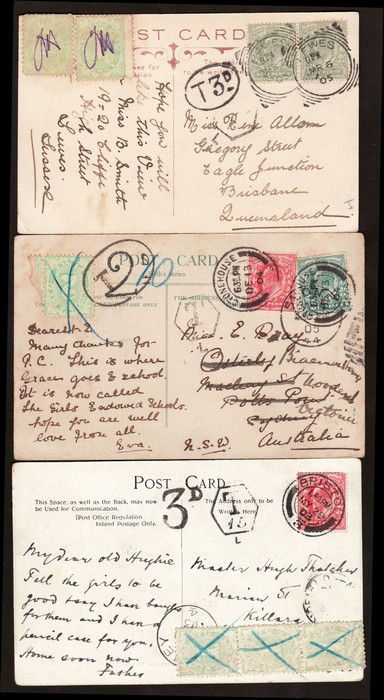 POST CARD
T 3D
LEWES
MR 6
05
Hope you will
like this View
Miss B. Smith
19-20 Cliffe
High Street
Lewes.
Sussex
Miss Allom
Gregory Street
Eagle Junction
Brisbane
Queensland
L
POST CARD
T 2D
10
STONEHOUSE
DE 13
T
Dearest E
Many thanks for
P.C. This is where
Grace goes to school.
It is now called
The Girls Endowed Schools.
hope you are well
love from all
Eva.
Miss E. Bray
Macleay St
Potts Point
Sydney
Victoria
N.S.W.
Australia
POST CARD
This Space, as well as the Back, may now
be Used for Communication.
(Post Office Regulation
Inland Postage Only.
The Address only to be
Written Here.
3D
T
15
L
BRISTOL
My dear old Hughie
Tell the girls to be
good & say I have bought
for them and I have a
pencil case for you.
Home soon now
Father
Master Hugh Thatcher
Marian St
Killara